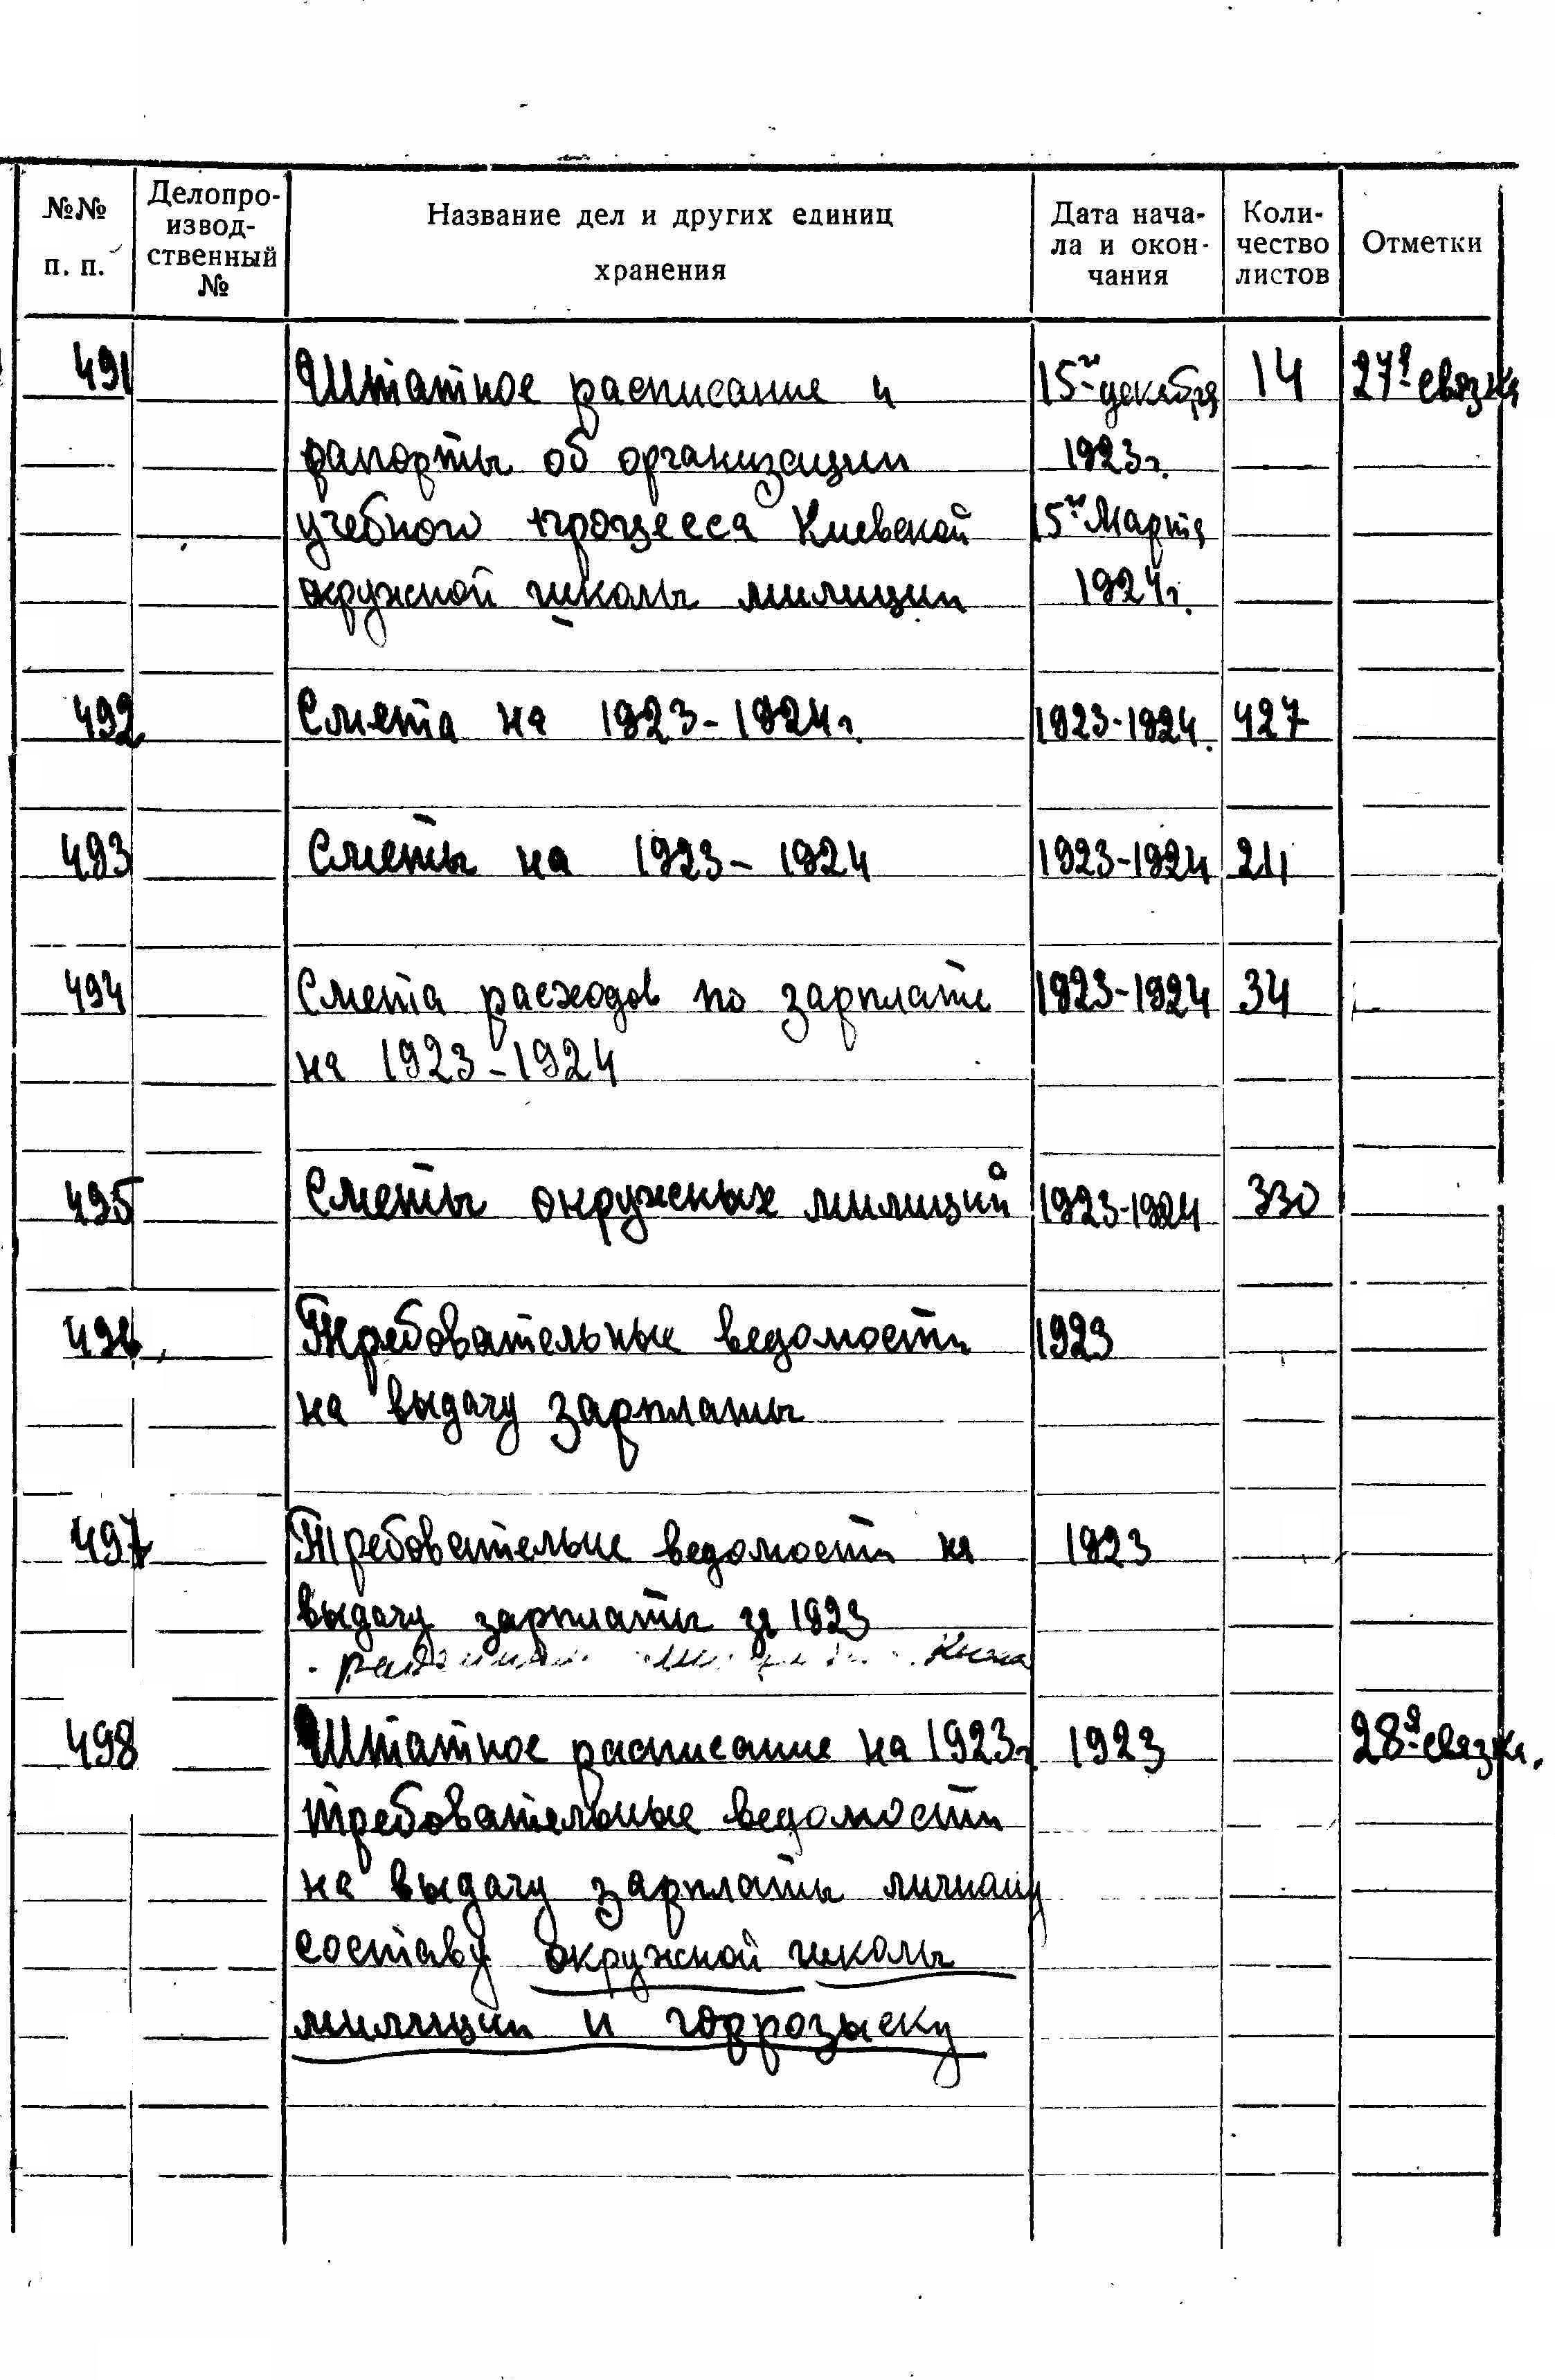 №№ п. п. Делопро-извод-ственный № Название дел и других единиц хранения Дата нача-ла и окон-чания Коли-чество листов Отметки
491 Штатное расписание и 15го декабря 14 27я связка
рапорты об организации 1923г.
учебного процесса Киевской 15го Марта
окружной школы милиции 1924г.
492 Смета на 1923-1924г. 1923-1924. 427
493 Сметы на 1923-1924 1923-1924 211
494 Смета расходов по зарплате 1923-1924 34
на 1923-1924
495 Сметы окружных милиций 1923-1924 330
496 Требовательные ведомости 1923
на выдачу зарплаты
497 Требовательные ведомости на 1923
выдачу зарплаты за 1923
498 Штатное расписание на 1923г. 1923 28я связка.
требовательные ведомости
на выдачу зарплаты личному
составу окружной школы
милиции и горрозыску